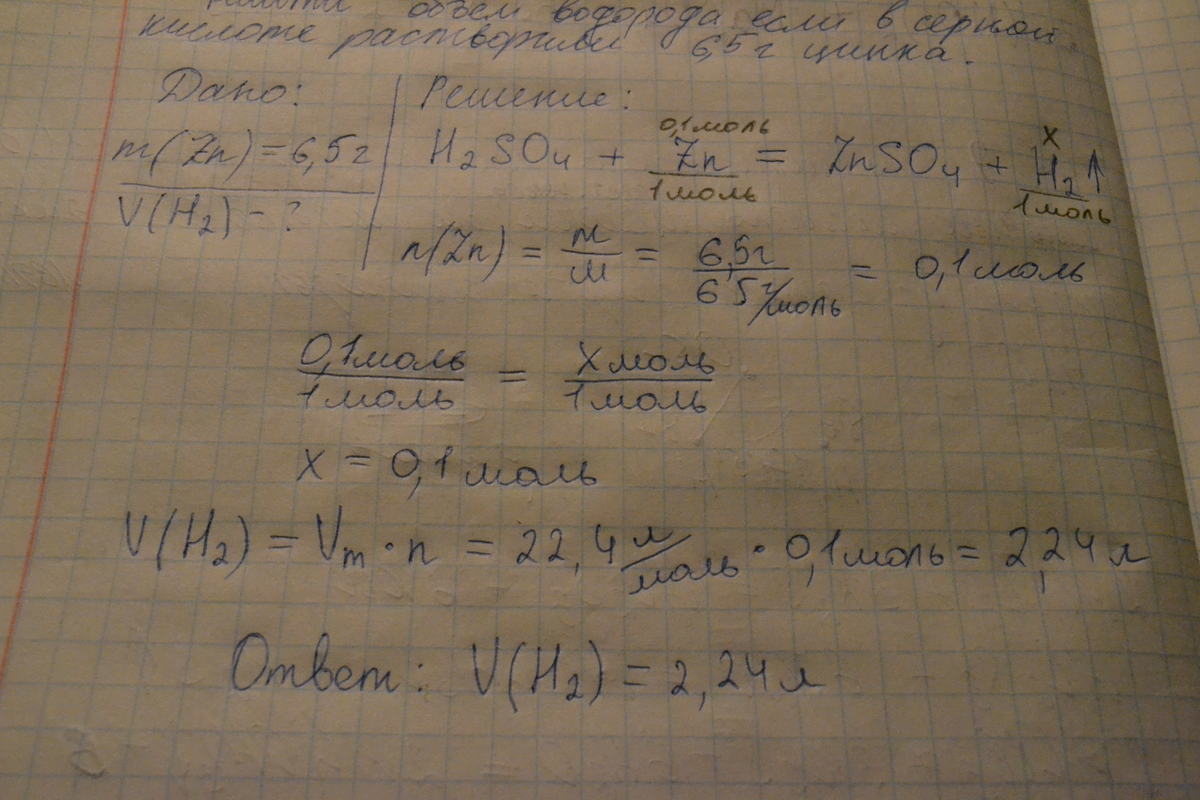 Найти объем водорода если в серной
кислоте растворили 6,5г цинка.
Дано:
m(Zn) = 6,5г
V(H₂) - ?
Решение:
0,1моль x
H₂SO₄ + Zn = ZnSO₄ + H₂↑
1моль 1моль
n(Zn) = m/M = 6,5г/65г/моль = 0,1моль
0,1моль/1моль = x моль/1моль
x = 0,1моль
V(H₂) = Vm · n = 22,4 л/моль · 0,1моль = 2,24 л
Ответ: V(H₂) = 2,24 л